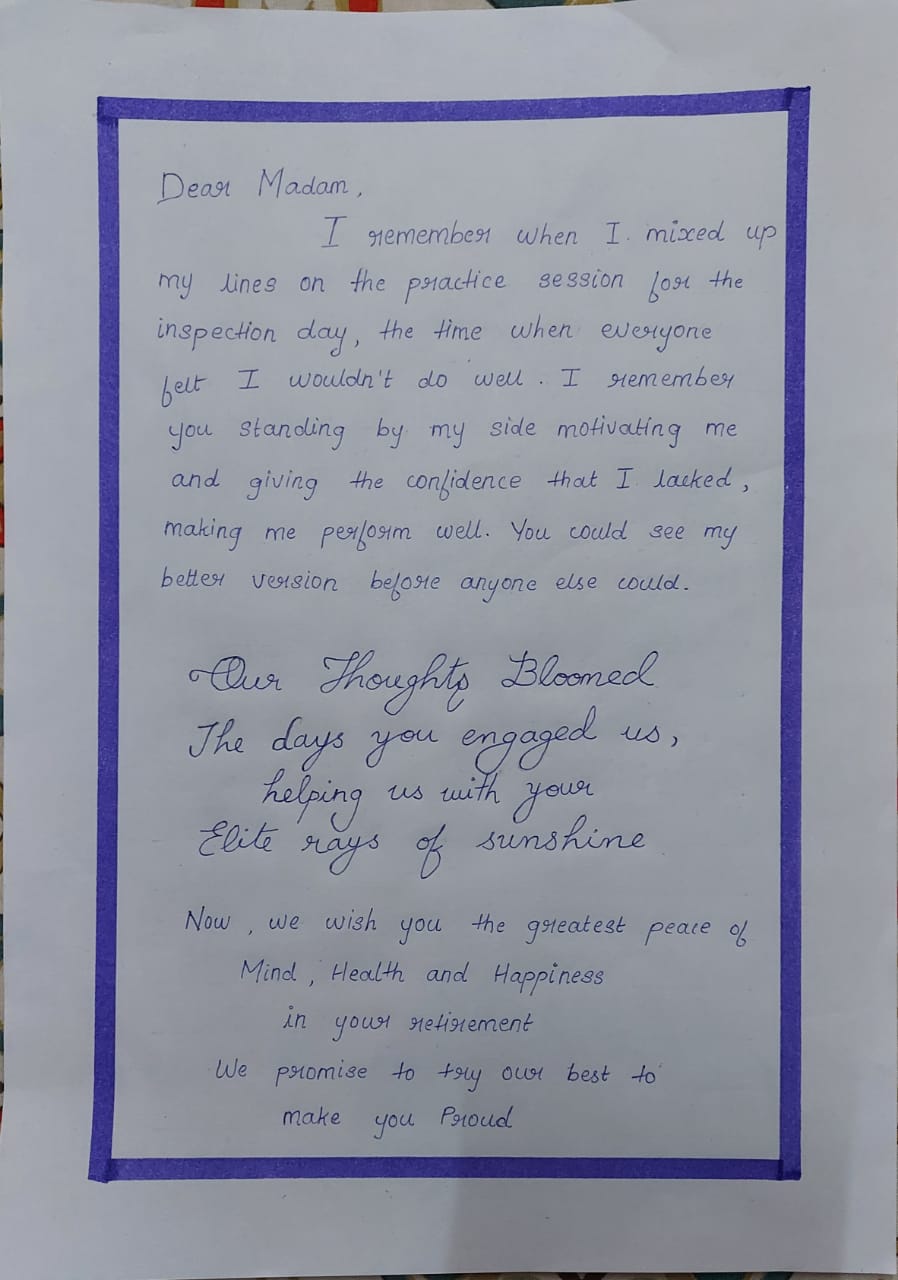 Dear Madam,
I remember when I mixed up
my lines on the practice session for the
inspection day, the time when everyone
felt I wouldn't do well. I remember
you standing by my side motivating me
and giving the confidence that I lacked,
making me perform well. You could see my
better version before anyone else could.
Our Thoughts Bloomed
The days you engaged us,
helping us with your
Elite rays of sunshine
Now, we wish you the greatest peace of
Mind, Health and Happiness
in your retirement
We promise to try our best to
make you Proud